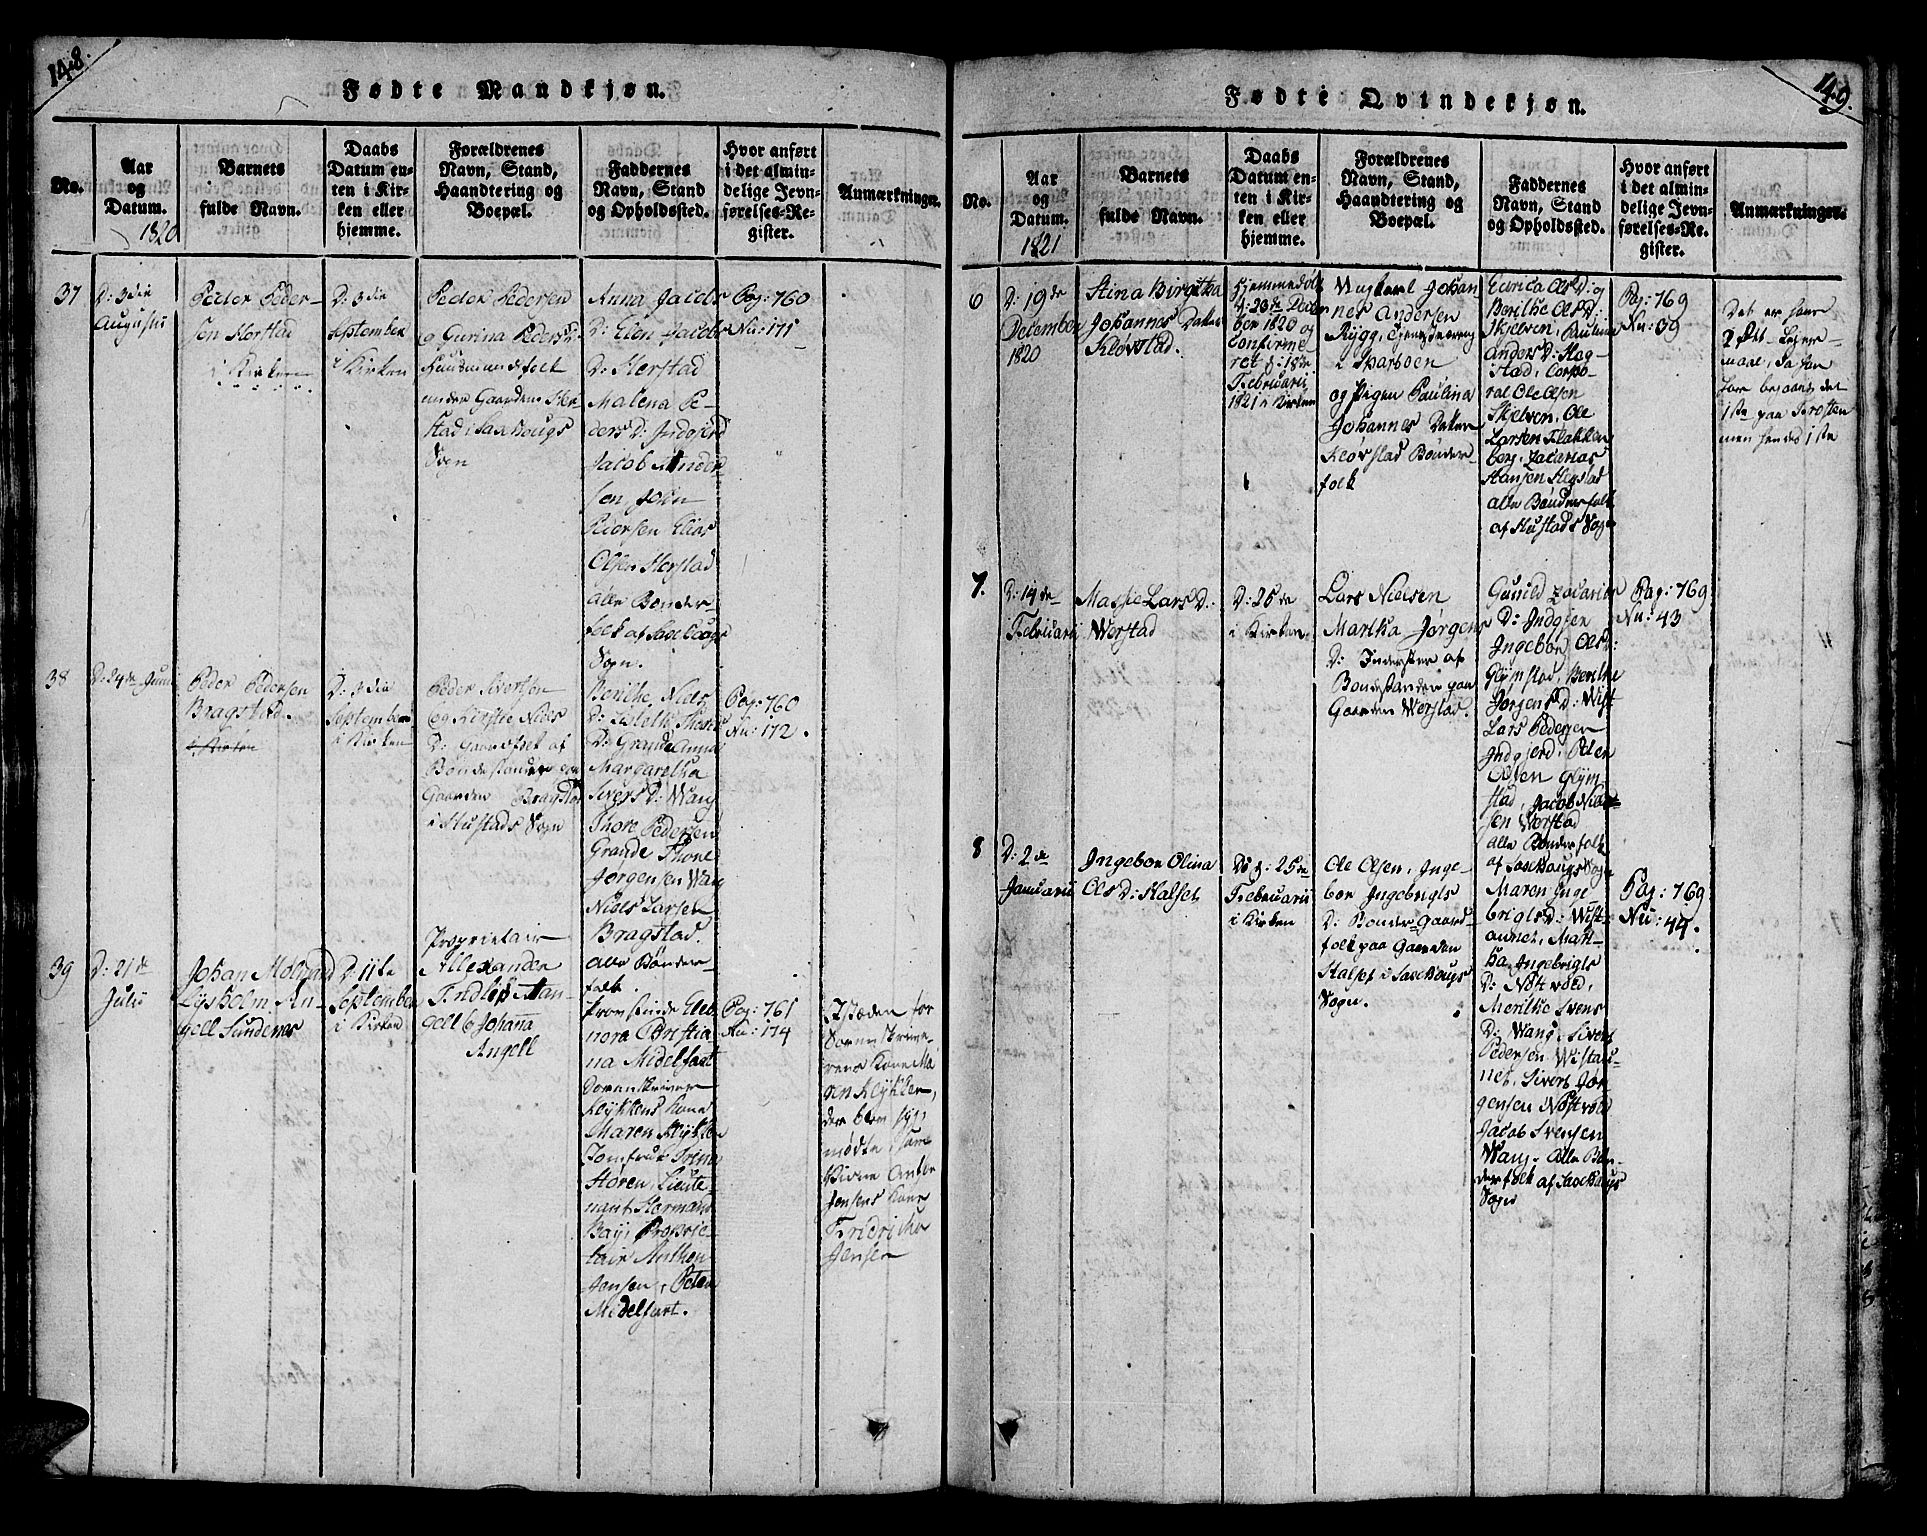 148.
Fødte Mandkjøn.
No.
Aar
og
Datum.
1820
Barnets
fulde Navn.
Daabs
Datum en-
ten i Kir-
ken eller
hjemme.
Forældrenes
Navn, Stand,
Haandtering og
Boepæl.
Faddernes
Navn, Stand
og Opholdssted.
Hvor anført
i det almin-
delige Jevn-
førelses-Re-
gister.
Anmærkninger.
37
D: 3die
Augustii
Peder Peder-
sen Herstad
i Kirken
D: 3die
September
i Kirken
Peder Pedersen
og Gurina Peders D:
Huusmandsfolk
under Gaarden Her-
stad i Saxhougs
Sogn
Anna Jacobs
D: Elen Jacobs
D: Herstad
Malena Pe-
ders D: Indgjerd
Jacob Ander-
sen, John
Pedersen Elias
Olsen Herstad
alle Bønder-
folk af Saxhougs
Sogn.
Pag: 760
Nu: 171
38
D: 24de Junii
Peder Pedersen
Bragstad.
i Kirken
D: 3die
September
i Kirken
Peder Sivertsen
og Kirstie Niels
D: Gaardfolk af
Bondestanden paa
Gaarden Bragstad
i Hustads Sogn
Berithe Niels
D: Lisbeth Thores
D: Grande Anna
Margaretha
Sivers D: Wang
Thore Pedersen
Grande Thone
Jørgensen Wang
Niels Larsen
Bragstad.
alle Bønder-
folk.
Pag: 760
Nu: 172.
39
D: 21de
Julii
Johan Møllmand
Lysholm An-
gell Sundenes
D: 11te
September
i Kirken
Proprietair
Allexander
Findlip Man-
gell og Johanna
Angell
Provstinde Eleo-
nora Christia-
na Midelfart
Sorenskriver
Klykkens Kone
Maren Klykken
Jomfrue Trina
Støren, Lieute-
nant Hermand
Bay, Proprie-
tair Anthon
Jensen, Peter
Midelfart.
Pag: 761
Nu: 174
I stæden for
Sorenskrive-
rens Kone Ma-
ren Klykken,
der blev syg,
mødte
Anthon
Jensens Kone
Fridricha
Jensen
149.
Fødte Qvindekjøn.
No.
Aar
og
Datum.
1821
Barnets
fulde Navn.
Daabs
Datum en-
ten i Kir-
ken eller
hjemme.
Forældrenes
Navn, Stand,
Haandtering og
Boepæl.
Faddernes
Navn, Stand
og Opholdssted.
Hvor anført
i det almin-
delige Jevn-
førelses-Re-
gister.
Anmærkninger.
6
D: 19de
December
1820
Stina Birgitha
Johannes Datter
Kløvstad.
Hjemmedøbt
d: 23de Decem-
ber 1820 og
Confirme-
ret d: 18de
Februarii
1821 i Kirken
Ungkarl Johan-
nes Andersen
Rygg, tjenestedreng
i Sparboen
og Pigen Paulina
Johannes Datter
Kløvstad Bønder-
folk
Ols D: og
Berithe Ols D:
Skjelven, Paulina
Anders D: Heg-
stad, Corpo-
ral Ole Olsen
Skjelven, Ole
Larsen Flakken-
berg, Zacarias
Hansen Hegstad
alle Bønderfolk
af Hustads Sogn
Pag: 769
Nu: 39
Det er hans
2det Leyer-
maal, da han
har begaaet det
1ste paa Frosten
men hendes 1ste
7.
D: 14de
Februarii
Massie Lars D:
Werstad
D: 25de
i Kirken
Lars Nielsen
Martha Jørgens
D: Inderster af
Bondestanden paa
Gaarden Werstad.
Gunild Zacarias
D: Indgjer
Ingebor Ols D:
Glymstad, Berithe
Jørgens D: Wist
Lars Pedersen
Indgjerd, Peter
Olsen Glym-
stad, Jacob Niel-
sen Werstad
alle Bønderfolk
af Saxhougs Sogn
Pag: 769
Nu: 43
8
D: 2de
Januarii
Ingebor Olina
Ols D: Halset
D: 25de
Februarii
i Kirken
Ole Olsen, Inge-
bor Ingebrigts
D: Bønder Gaard-
folk paa Gaarden
Halset i Saxhougs
Sogn.
Maren Inge-
brigts D: Wist-
aunet, Mart-
ha Ingebrigts
D: Nøstvold,
Merithe Svens
D: Wang, Sivert
Pedersen Wistau-
net, Sivert Jør-
gensen Nøstvold
Jacob Svensen
Wang. Alle Bøn-
derfolk af Saxhougs
Sogn
Pag: 769
Nu: 44.